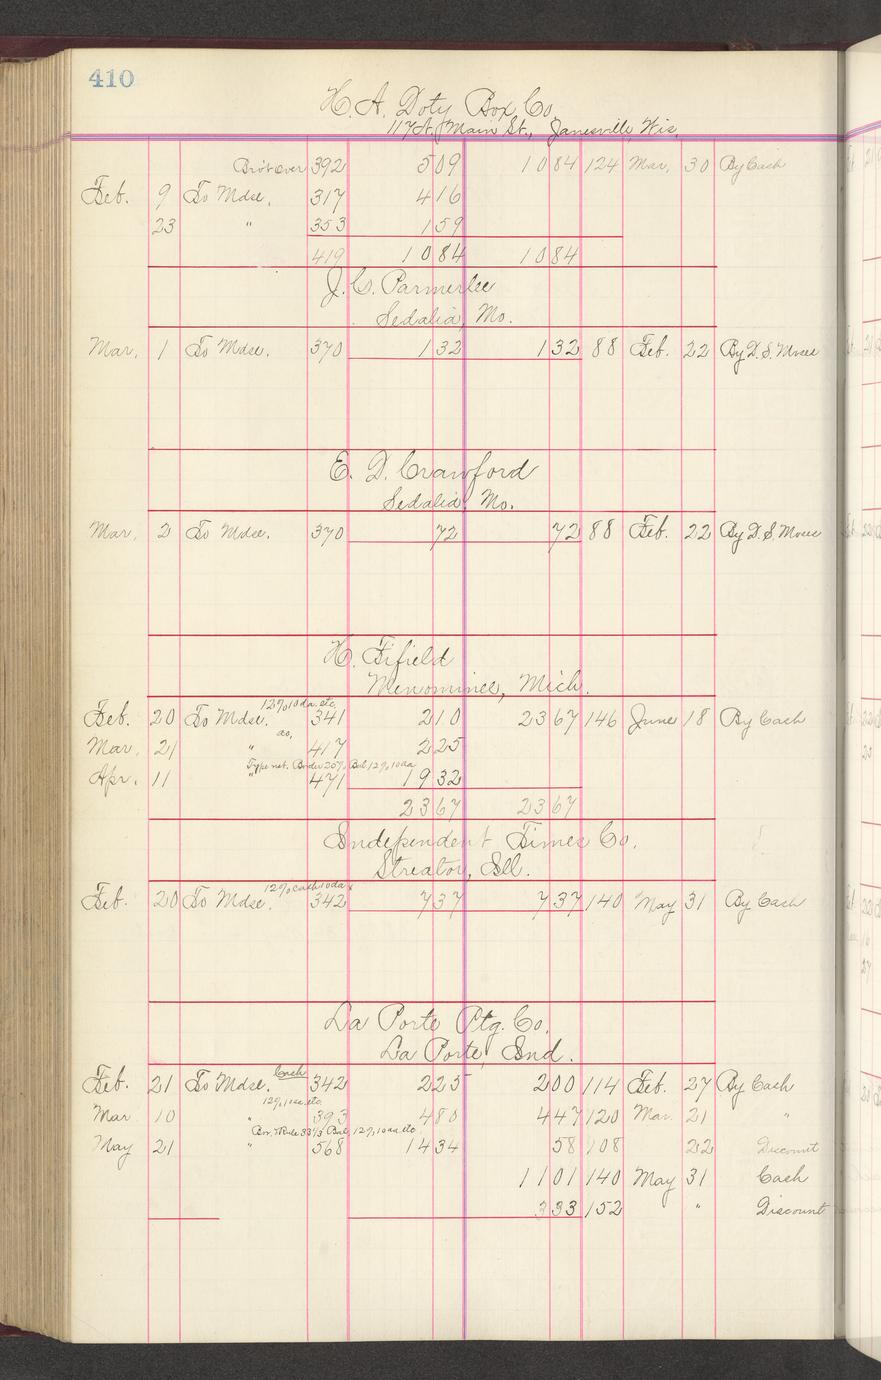 410
H. A. Doty Box Co.
117 N. Main St., Janesville, Wis.
Bro't Over 392 509 1084 124 Mar. 30 By Cash
Feb. 9 To Mdse. 317 416
23 " 353 159
419 1084 1084
J. C. Parmerlee
Sedalia, Mo.
Mar. 1 To Mdse. 370 132 132 88 Feb. 22 By D. S. Moses
E. D. Crawford
Sedalia, Mo.
Mar. 2 To Mdse. 370 72 72 88 Feb. 22 By D. S. Moses
H. Fifield
Menominee, Mich.
12% 10 da. etc.
Feb. 20 To Mdse. 341 210 2367 146 June 18 By Cash
do.
Mar. 21 " 417 225
Type net. Border 25% Bal. 12% 10 da
Apr. 11 " 471 1932
2367 2367
Independent Times Co.
Streator, Ill.
12% cash 10 da
Feb. 20 To Mdse. 342 737 737 140 May 31 By Cash
La Porte Ptg. Co.
La Porte, Ind.
Cash
Feb. 21 To Mdse. 342 225 200 114 Feb. 27 By Cash
12% 10 da. etc.
Mar 10 " 393 480 447 120 Mar. 21 "
Bor. & Rule 33 1/3 Bal. 12% 10 da etc
May 21 " 568 1434 58 108 22 Discount
1101 140 May 31 Cash
333 152 " Discount